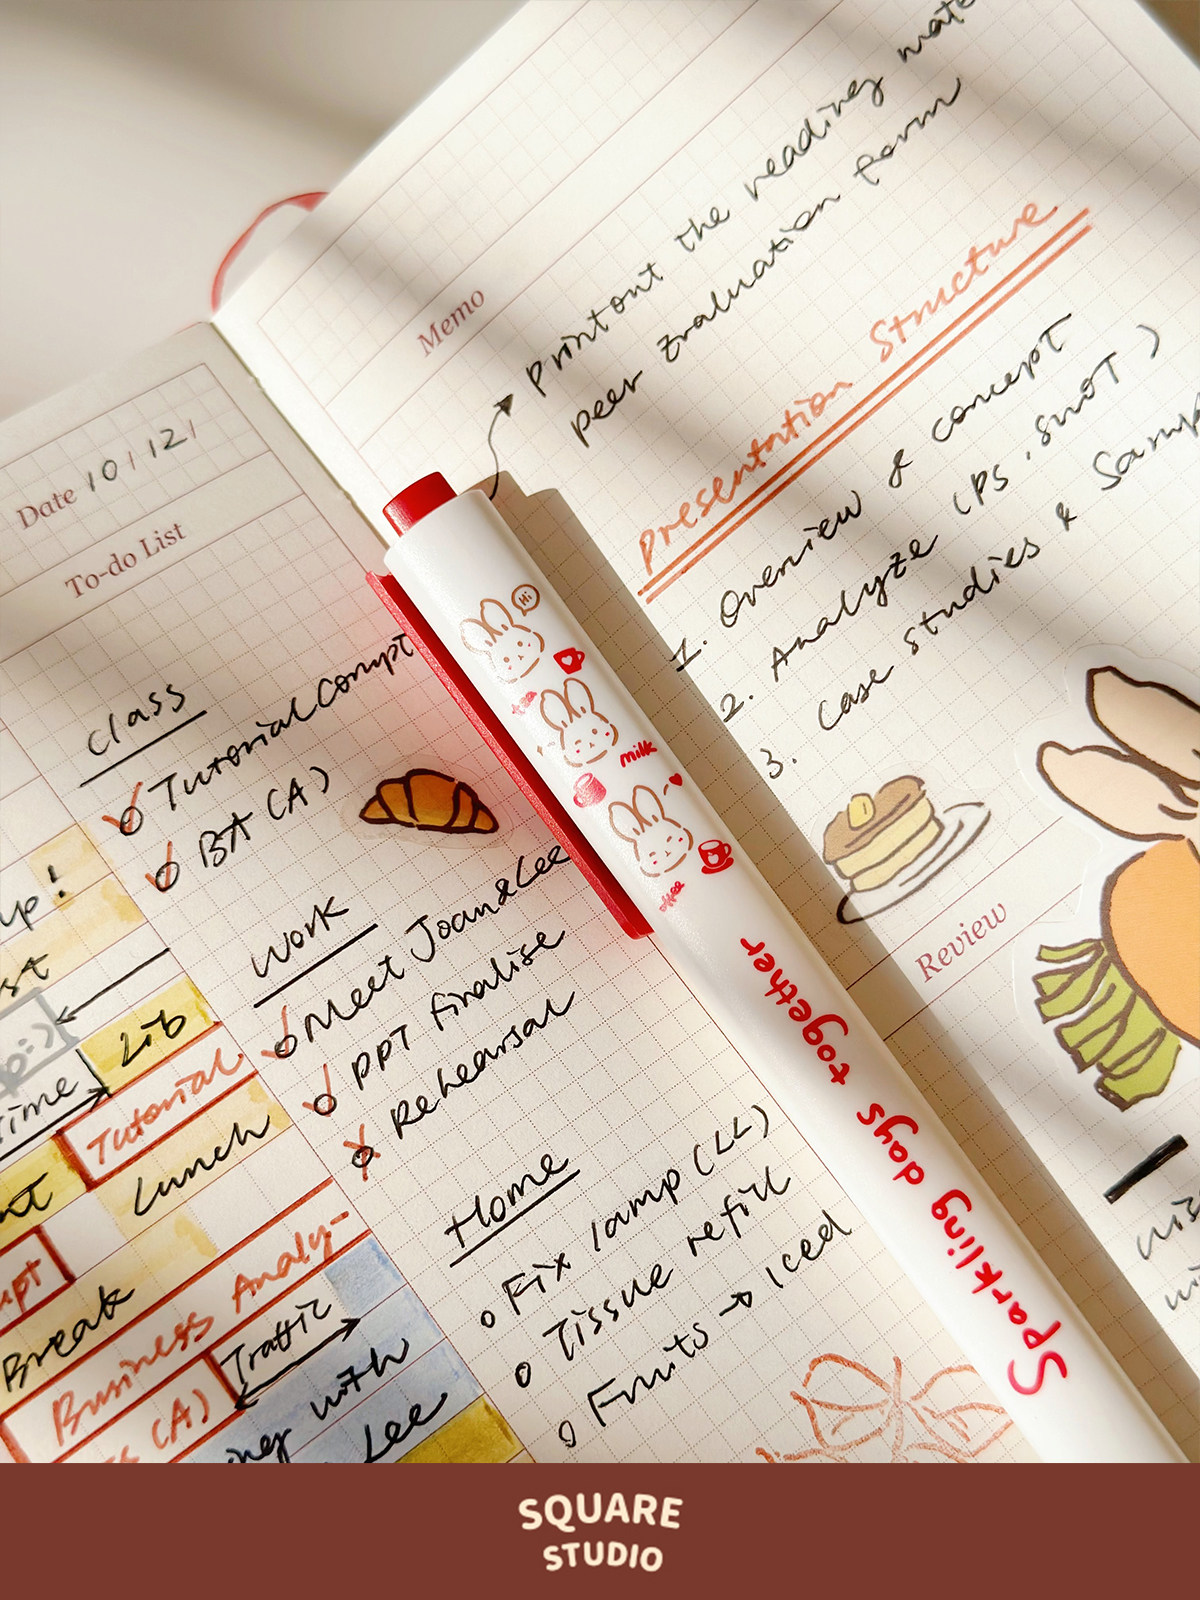 Date 10/12/
To-do List
Class
Tutorial Conupt
BA (A)
Work
Meet Joan & Lee
PPT finalise
Rehearsal
Home
Fix lamp (LL)
Tissue refill
Fruits → Iced
up!
Lib
Time
Tutorial
Lunch
Break
Business Analy-
(A)
Traffic
with
Lee
Memo
Printout the reading mate
peer Evaluation form
Presentation Structure
1. Overview & concept
2. Analyze (PS, SWOT)
3. Case studies & Samp
Review
Hi
milk
coffee
Sparkling days together
SQUARE
STUDIO